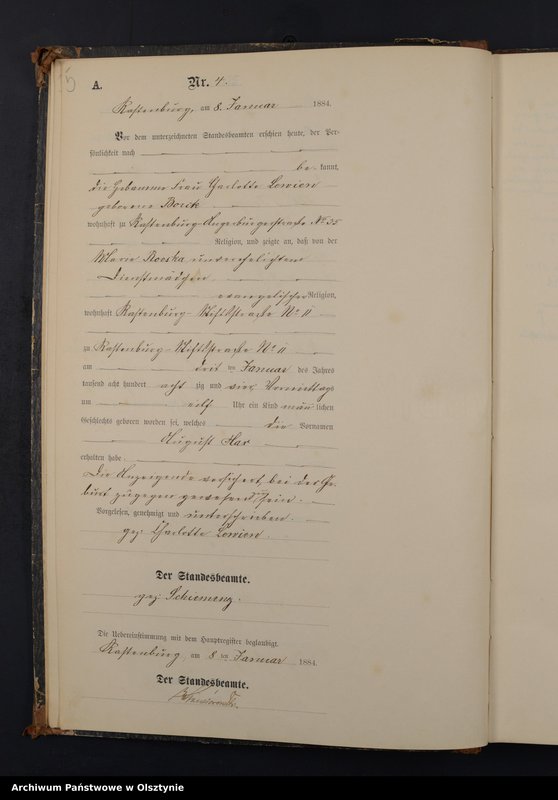 15
A. Nr. 4.
Rastenburg, am 8. Januar 1884.
Vor dem unterzeichneten Standesbeamten erschien heute, der Per-
sönlichkeit nach
be kannt,
die Hebamme Frau Charlotte Lowien
geborene Borck
wohnhaft zu Rastenburg-Angerburgerstraße No 55
Religion, und zeigte an, daß von der
Marie unverehelichten
Dienstmädchen
evangelischer Religion,
wohnhaft Rastenburg - Stiftstraße No 11
zu Rastenburg - Stiftstraße No 11
am drit ten Januar des Jahres
tausend acht hundert acht zig und vier Vormittags
um eilf Uhr ein Kind männ lichen
Geschlechts geboren worden sei, welches die Vornamen
August
erhalten habe.
Die Anzeigende versichert bei der Ge-
burt zugegen gewesen zu sein.
Vorgelesen, genehmigt und unterschrieben.
gez. Charlotte Lowien.
Der Standesbeamte.
gez.
Die Uebereinstimmung mit dem Hauptregister beglaubigt.
Rastenburg, am 8 ten Januar 1884.
Der Standesbeamte.
Archiwum Państwowe w Olsztynie